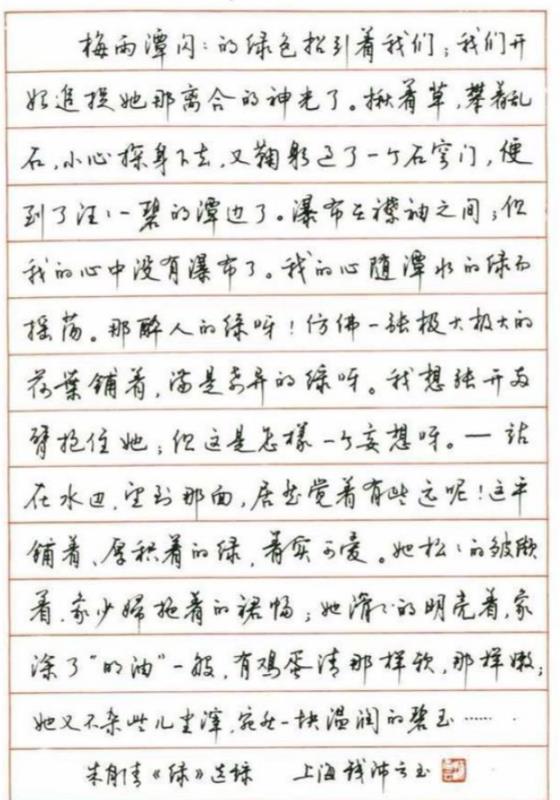 梅雨潭闪：的绿色招引着我们；我们开
始追捉她那离合的神光了。揪着草，攀着乱
石，小心探身下去，又鞠躬过了一个石穹门，便
到了汪：一碧的潭边了。瀑布在襟袖之间；但
我的心中没有瀑布了。我的心随潭水的绿而
摇荡。那醉人的绿呀！仿佛一张极大极大的
荷葉铺着，满是奇异的绿呀。我想张开两
臂抱住她；但这是怎樣一个妄想呀。—站
在水边，望到那面，居然觉着有些远呢！这平
铺着、厚积着的绿，着实可爱。她松：的皱缬
着，象少婦拖着的裙幅；她滑：的明亮着，象
涂了“的油”一般，有鸡蛋清那样软，那样嫩；
她又不杂些儿尘滓，宛然一块温润的碧玉……
朱自清《绿》选录 上海钱沛云